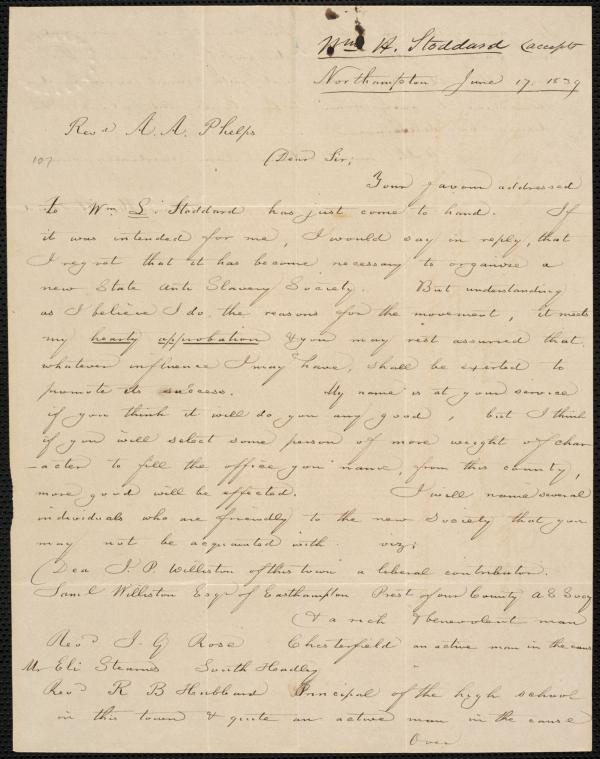 Wm H. Stoddard (accepts
Northampton June 17. 1839
Revd A. A. Phelps
107
Dear Sir;
Your favour addressed
to Wm S. Stoddard has just come to hand. If
it was intended for me, I would say in reply, that
I regret that it has become necessary to organise a
new State Anti Slavery Society. But understanding
as I believe I do, the reasons for the movement, it meets
my hearty approbation & you may rest assured that
whatever influence I may have, shall be exerted to
promote its success. My name is at your service
if you think it will do you any good, but I think
if you will select some person of more weight of char
-acter to fill the office you name, from this county,
more good will be effected. I will name several
individuals who are friendly to the new Society that you
may not be acquainted with. viz;
Dea J. P. Williston of this town a liberal contributor.
Saml Williston Esqr of Easthampton Prest of our County A S Socy
& a rich & benevolent man
Revd J. G Rose Chesterfield an active man in the cause
Mr Eli Stearns South Hadley "
Revd R B Hubbard Principal of the high school
in this town & quite an active man in the cause
Over